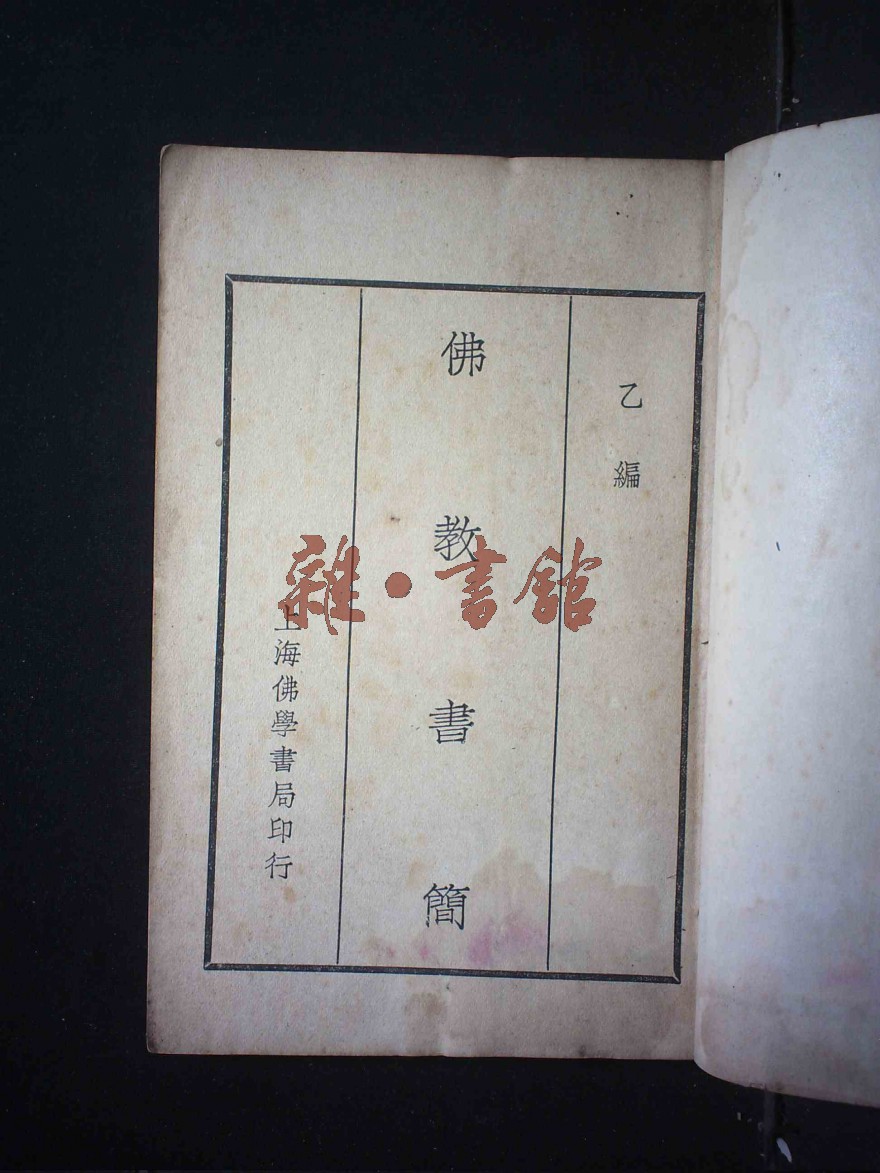 乙編
佛教書簡
上海佛學書局印行
雜·書館